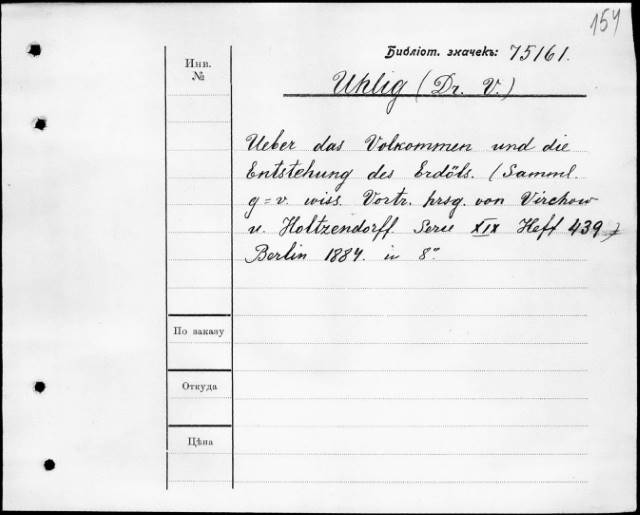 154
Библіот. значекъ: 75161.
Инв.
№
Uhlig (Dr. V.)
Ueber das Volkommen und die
Entstehung des Erdöls. (Samml.
g=v. wiss. Vortr. hrsg. von Virchow
u. Holtzendorff. Serie XIX Heft 439)
Berlin 1884. in 8º
По заказу
Откуда
Цѣна